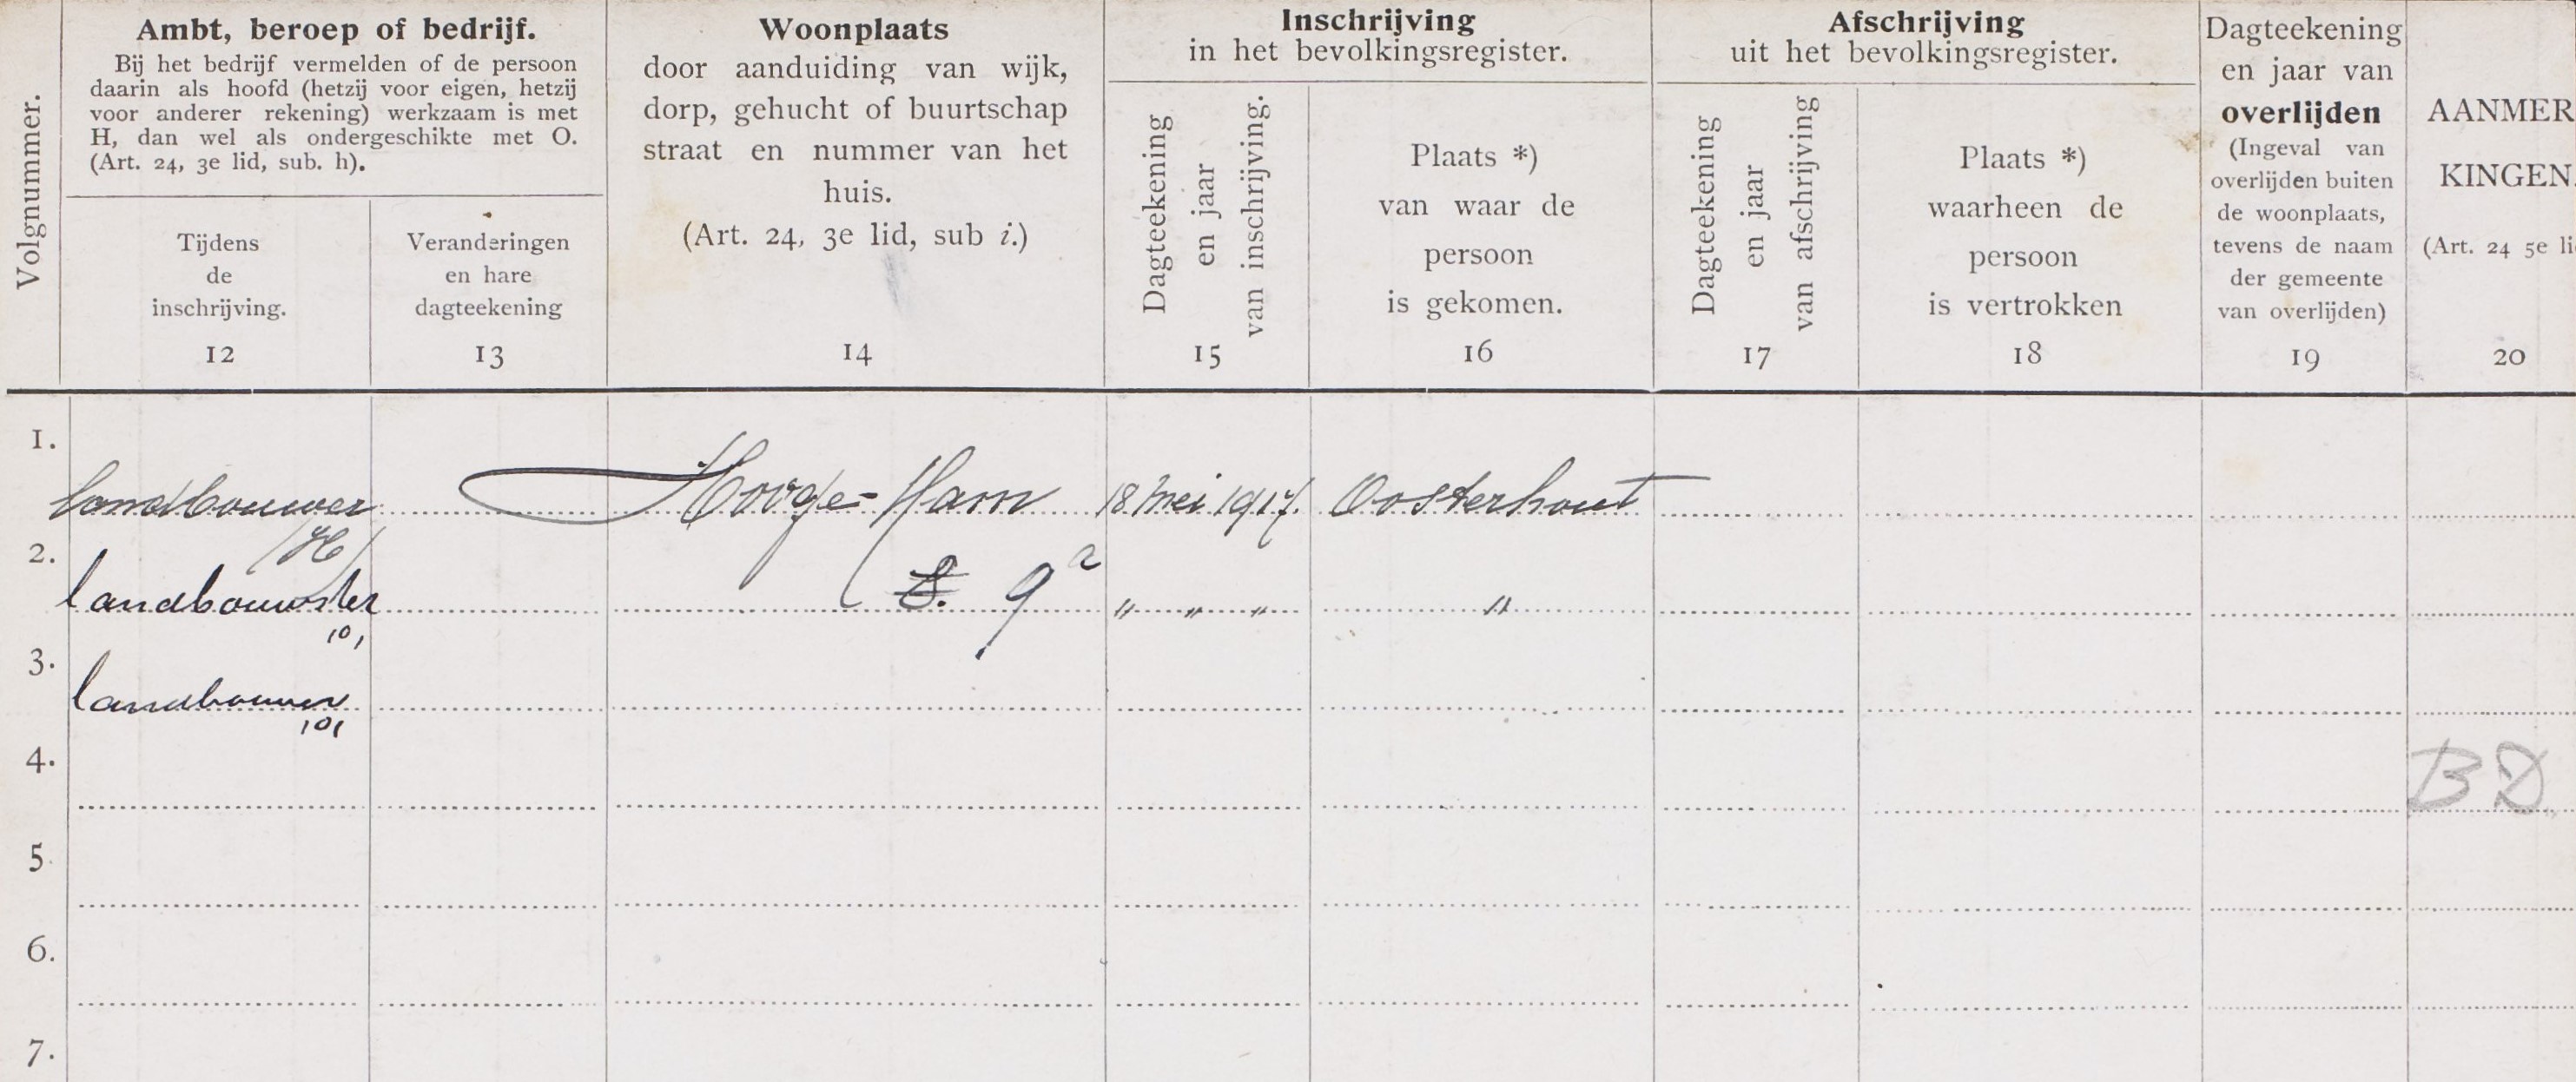 Volgnummer.
Ambt, beroep of bedrijf.
Bij het bedrijf vermelden of de persoon
daarin als hoofd (hetzij voor eigen, hetzij
voor anderer rekening) werkzaam is met
H, dan wel als ondergeschikte met O.
(Art. 24, 3e lid, sub. h).
Tijdens
de
inschrijving.
12
Veranderingen
en hare
dagteekening
13
Woonplaats
door aanduiding van wijk,
dorp, gehucht of buurtschap
straat en nummer van het
huis.
(Art. 24, 3e lid, sub i.)
14
Inschrijving
in het bevolkingsregister.
Dagteekening
en jaar
van inschrijving.
15
Plaats *)
van waar de
persoon
is gekomen.
16
Afschrijving
uit het bevolkingsregister.
Dagteekening
en jaar
van afschrijving
17
Plaats *)
waarheen de
persoon
is vertrokken
18
Dagteekening
en jaar van
overlijden
(Ingeval van
overlijden buiten
de woonplaats,
tevens de naam
der gemeente
van overlijden)
19
AANMER
KINGEN.
(Art. 24 5e li
20
1.
landbouwer Hooge-Ham 18 Mei 1917. Oosterhout
(H)
2.
landbouwster 9a " " " "
(O)
3.
landbouwer
(O)
4.
B D
5
6.
7.